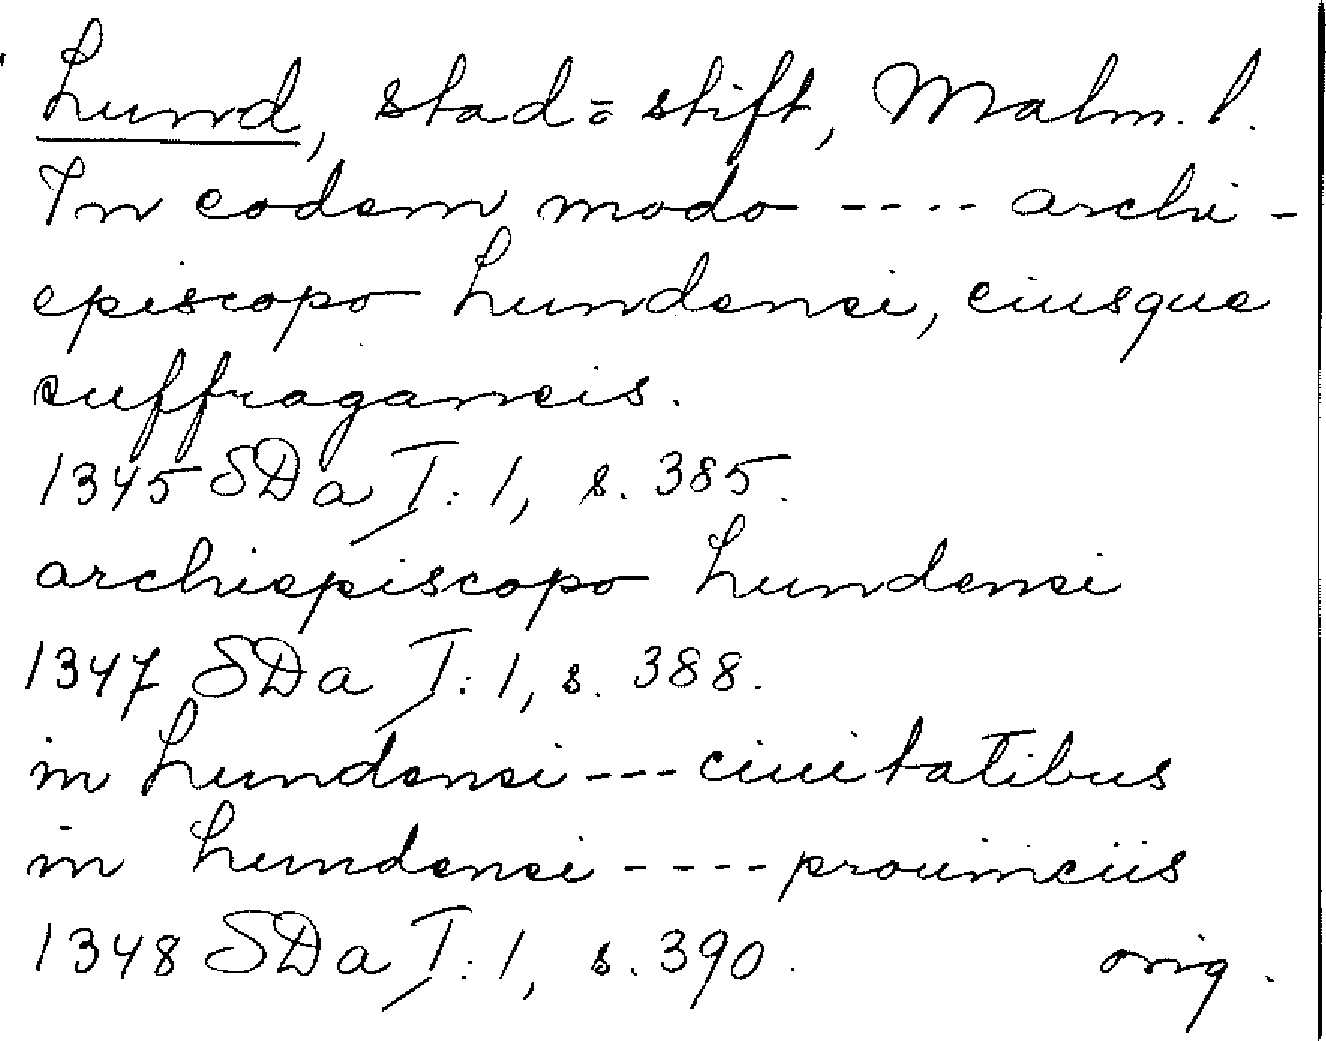 Lund, stad= stift, Malm. l.
In eodem modo ---- archi-
episcopo Lundensi, eiusque
suffraganeis.
1345 SDa I:1, s. 385.
archiepiscopo Lundensi
1347 SDa I:1, s. 388.
in Lundensi --- ciuitatibus
in Lundensi ---- prouinciis
1348 SDa I:1, s. 390. orig.